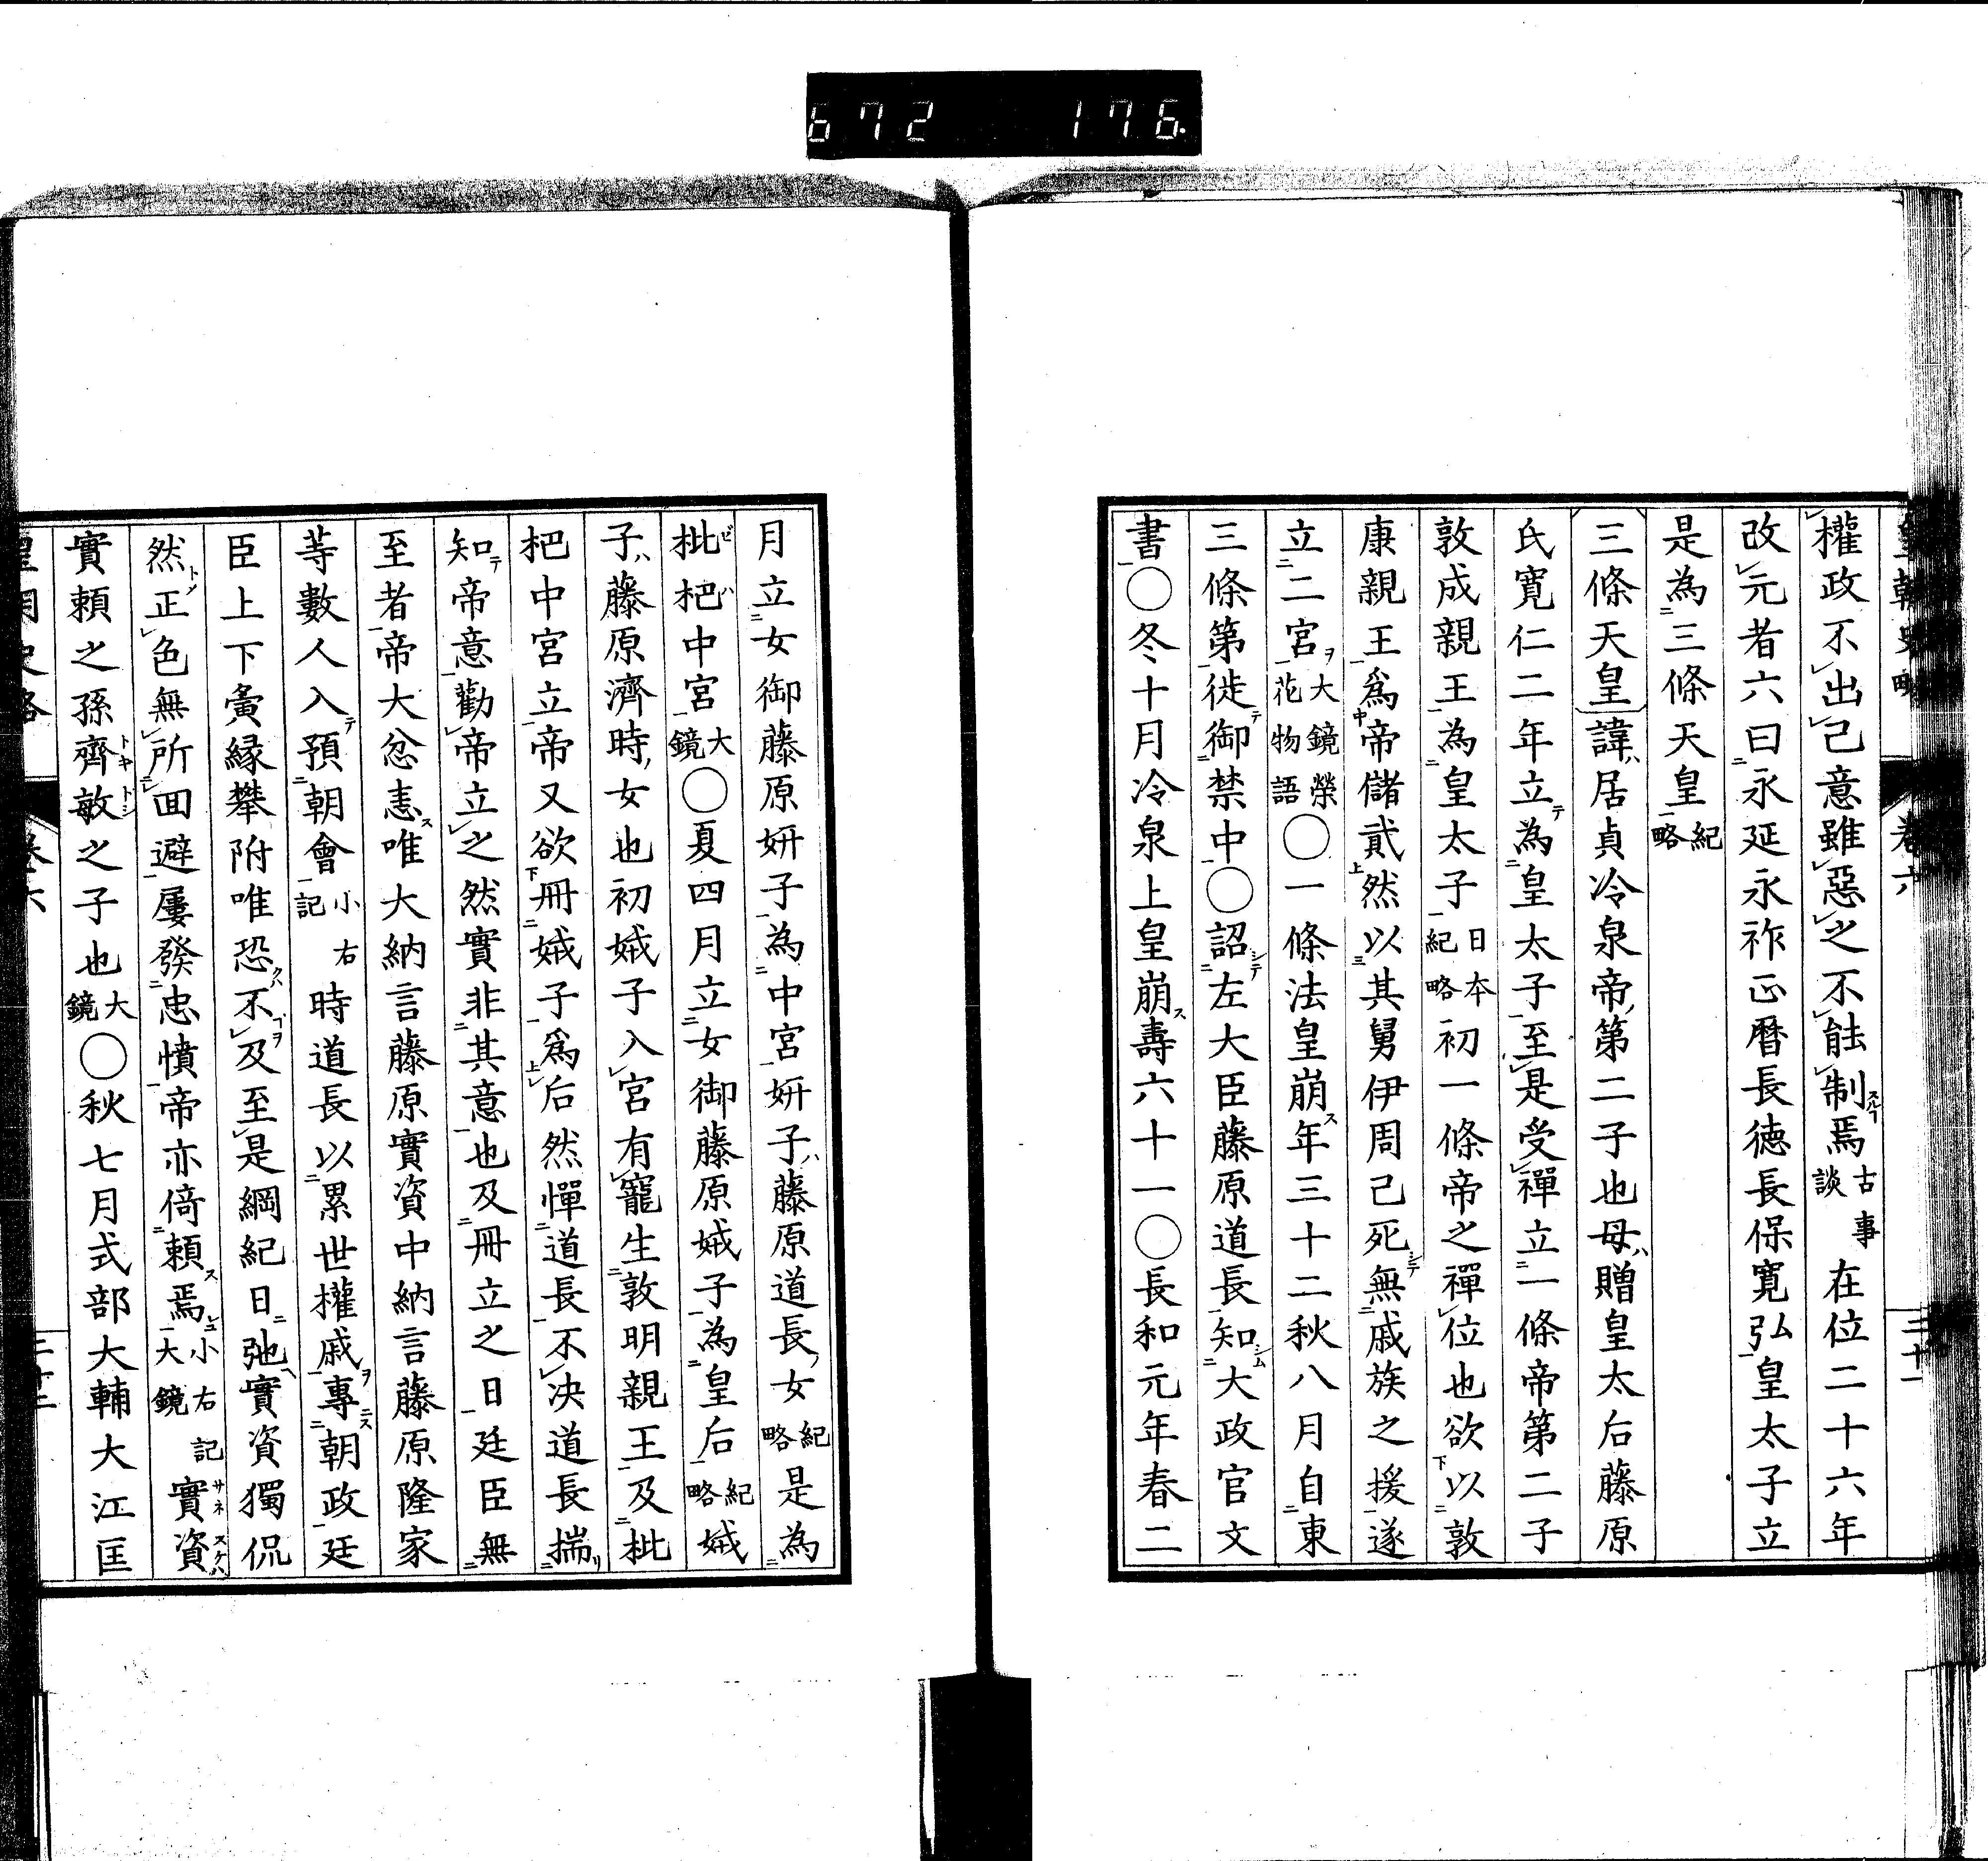 672 176
皇朝史略 卷六 三十一
權政不出己意雖惡之不能制焉古事談在位二十六年
改元者六曰永延永祚正曆長德長保寬弘皇太子立
是為三條天皇紀略
三條天皇諱居貞冷泉帝第二子也母贈皇太后藤原
氏寬仁二年立為皇太子至是受禪立一條帝第二子
敦成親王為皇太子日本紀略初一條帝之禪位也欲以敦
康親王爲帝儲貳然以其舅伊周己死無戚族之援遂
立二宮大鏡榮花物語○一條法皇崩年三十二秋八月自東
三條第徙御禁中○詔左大臣藤原道長知大政官文
書○冬十月冷泉上皇崩壽六十一○長和元年春二
月立女御藤原妍子為中宮妍子藤原道長女紀略是為
枇杷中宮大鏡○夏四月立女御藤原娍子為皇后紀略娍
子藤原濟時女也初娍子入宮有寵生敦明親王及枇
杷中宮立帝又欲冊娍子爲后然憚道長不决道長揣
知帝意勸帝立之然實非其意也及冊立之日廷臣無
至者帝大忿恚唯大納言藤原實資中納言藤原隆家
等數人入預朝會小右記時道長以累世權戚專朝政廷
臣上下夤縁攀附唯恐不及至是綱紀日弛實資獨侃
然正色無所回避屢發忠憤帝亦倚賴焉小右記大鏡實資
實賴之孫齊敏之子也大鏡○秋七月式部大輔大江匡
皇朝史略 卷六